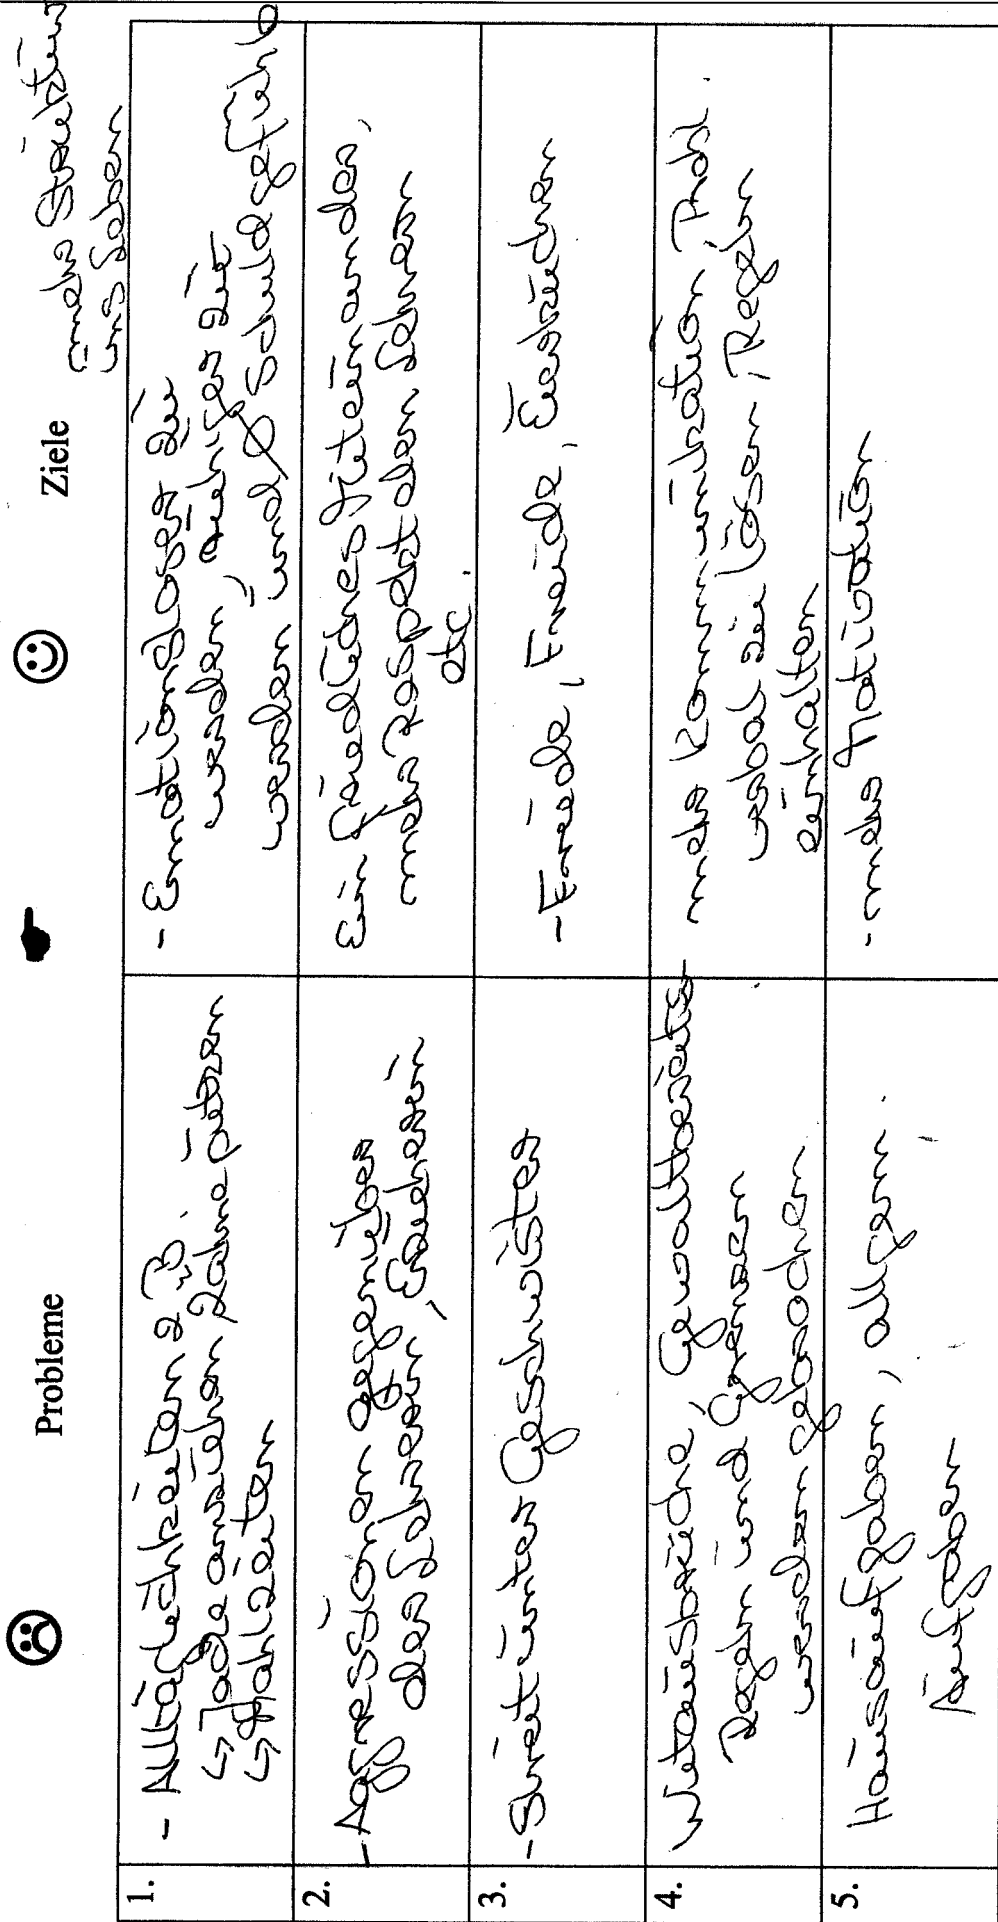 Probleme
Ziele
mehr Stärkung
ins Leben
1.
- Alltäglichkeiten z.B.
↳ Jacke anziehen, Zähne putzen
↳ Mahlzeiten
- Emotionsloser zu
werden, ruhiger zu
werden und Schuldgefühle
2.
- Aggressionen gegenüber
der Lehrerin, Erzieherin
Ein friedliches Miteinander,
mehr Respekt dem Lehrern
etc.
3.
- Streit unter Geschwister
- Freude, Freude,
4.
Wutausbrüche, Gewaltbereits
Regeln und Grenzen
werden gebrochen
mehr Kommunikation, Probl.
verbal zu lösen, Regeln
einhalten
5.
Hausaufgaben, allgem.
Aufgaben
- mehr Motivation